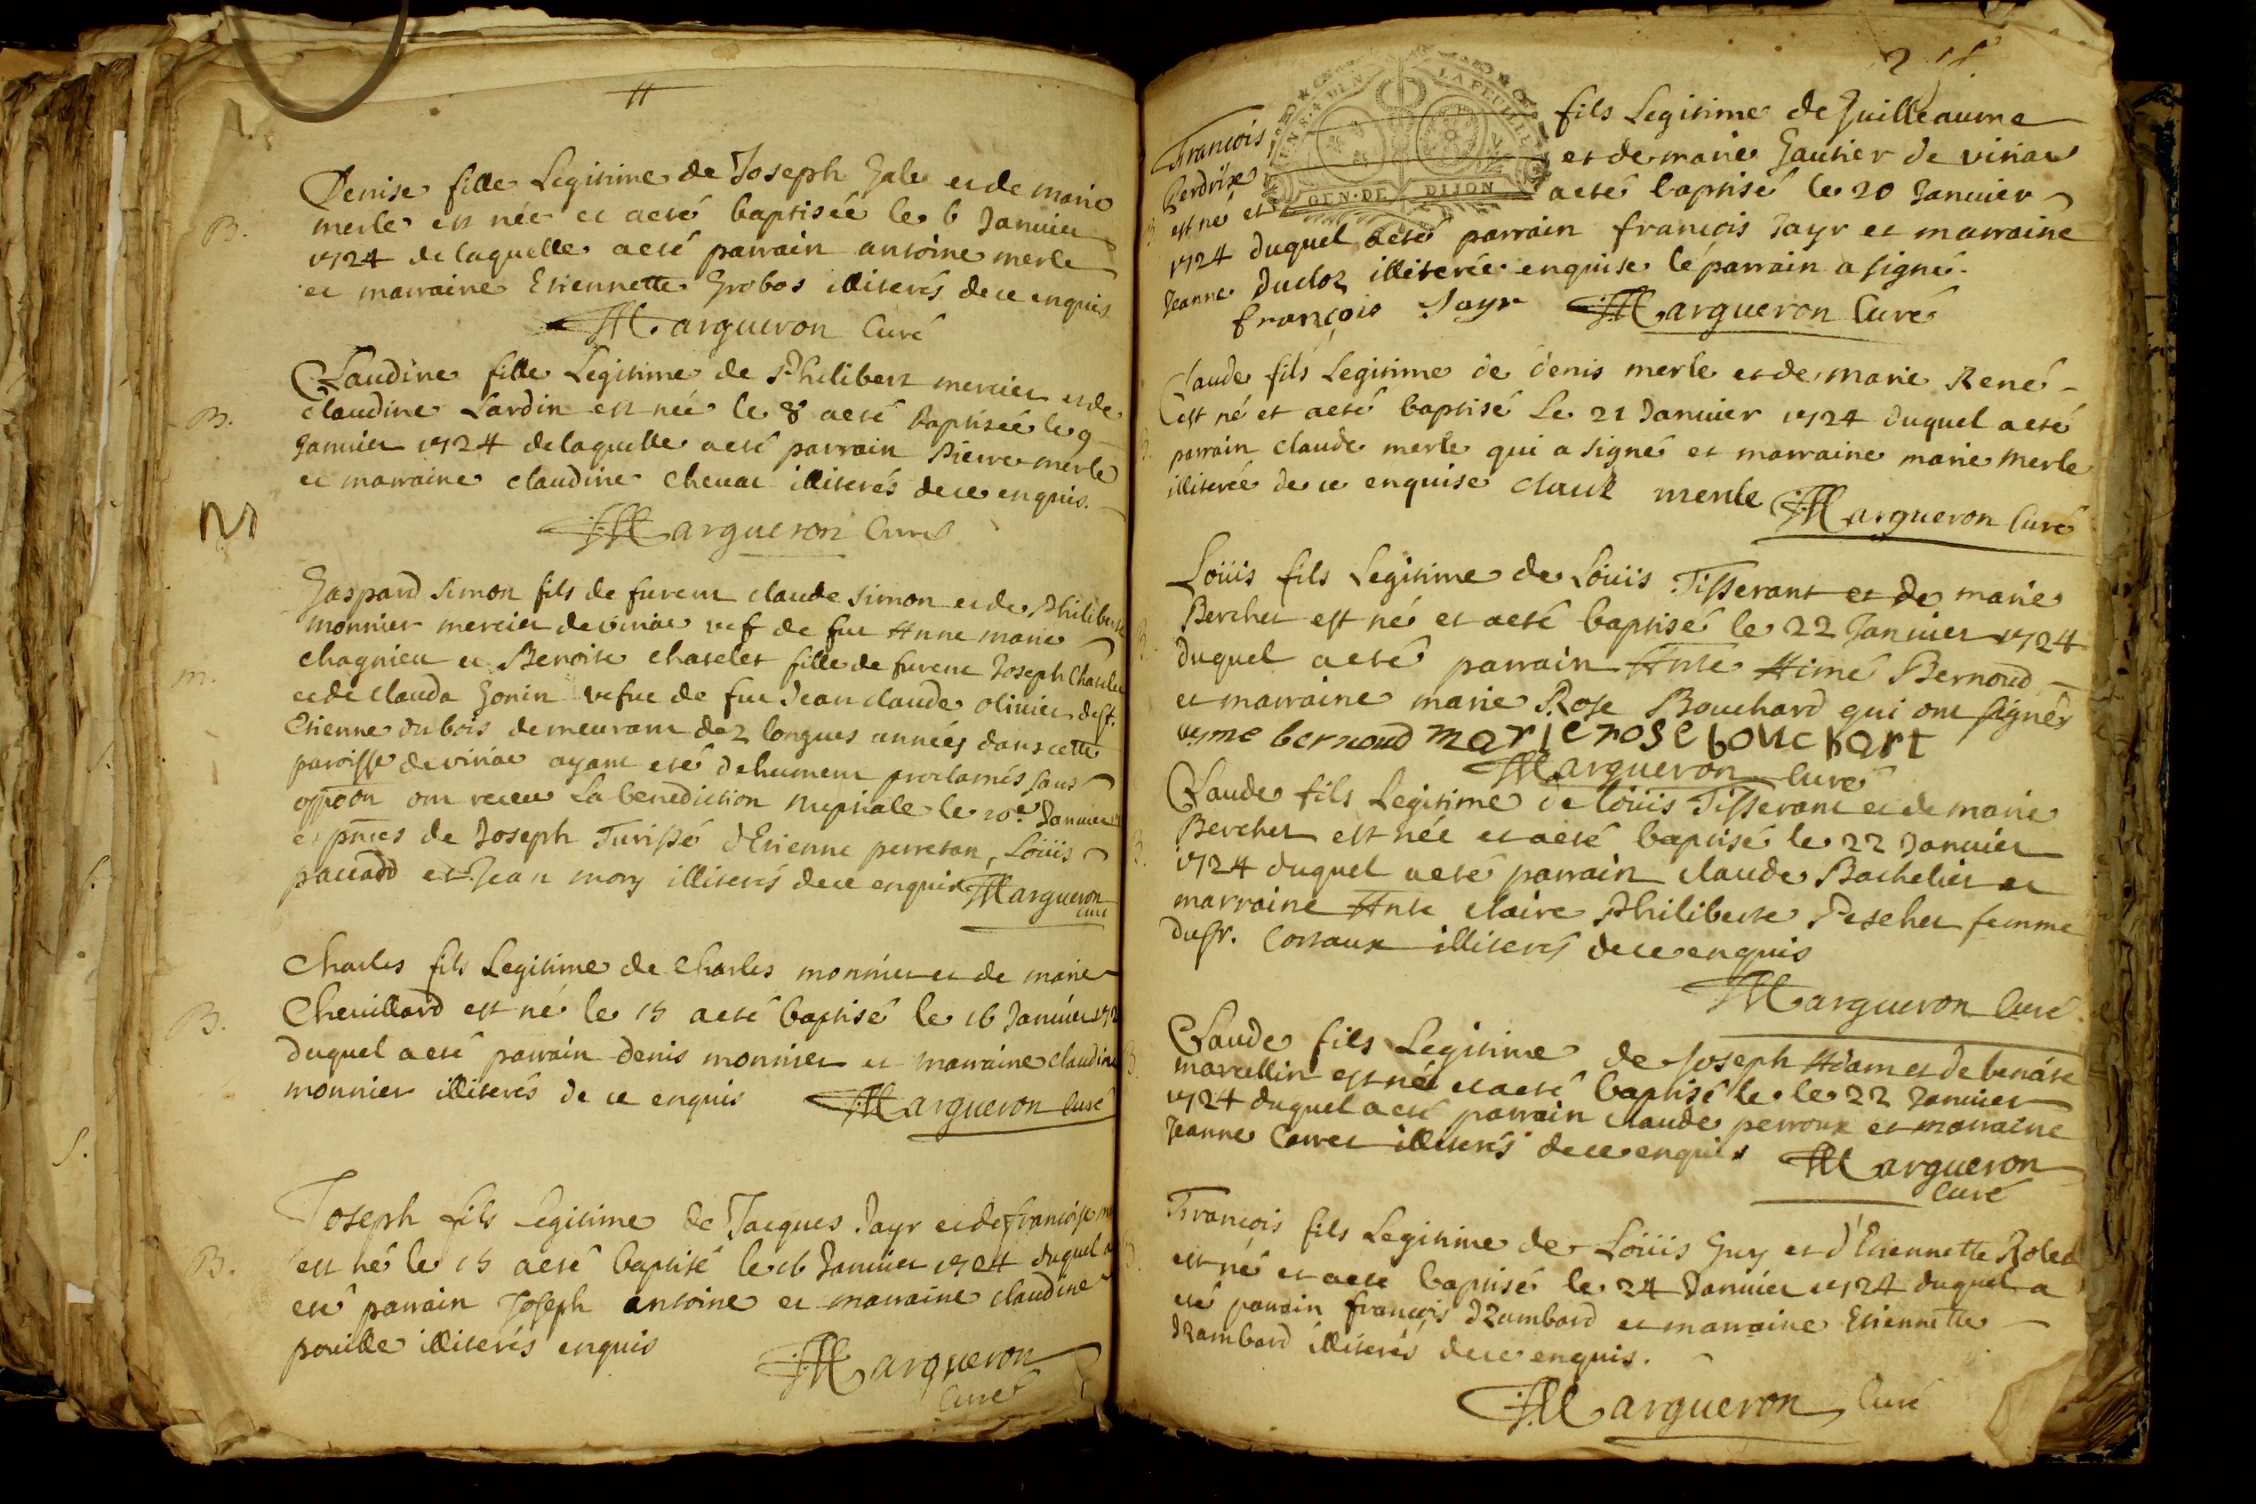 Denise fille Legitime de Joseph Gale et de marie
merle est née et aeté baptisée le 6 Janvier
1724 de laquelle aeté parrain antoine merle
et marraine Etiennette Grobos illiterés de ce enquis
Margueron Curé
B.
Claudine fille Legitime de Philibert mercier et de
claudine Lardin est née le 8 aeté baptisée le 9
Janvier 1724 de laquelle aeté parrain Pierre merle
et marraine claudine chevat illiterés de ce enquis.
Margueron Curé
B.
Gaspard simon fils de furent claude simon et de Philiberte
monnier mercier de viriat vef de fue Anne marie
chagnieu et Benoite chatelet fille de furent Joseph Chatelet
et de clauda Gonin vefue de fut Jean claude olivier de St.
Etienne du bois demeurant dez longues années dans cette
paroisse de viriat ayant eté dehument proclamés sans
oppõon ont receu La benediction nuptiale le 20e Janvier
es pñces de Joseph Turissé d'Etienne perretan, Loüis
paccard et Jean mory illiterés de ce enquis Margueron
curé
m.
Charles fils Legitime de Charles monnier et de marie
Chevillard est né le 15 aeté baptisé le 16 Janvier 172
duquel a eté parrain denis monnier et marraine claudine
monnier illiterés de ce enquis Margueron Curé
B.
Joseph fils Legitime de Jacques Jayr et de françoise
est né le 15 aeté baptisé le 16 Janvier 1724 duquel a
eté parrain Joseph antoine et marraine claudine
pouille illiterés enquis Margueron
Curé
B.
GEN. DE DIJON
François
Perdrix
est né et
fils Legitime de Guilleaume
et de marie Gautier de viriat
aeté baptisé le 20 Janvier
1724 duquel aeté parrain françois Jayr et marraine
Jeanne Ducloz illiterée enquise le parrain a signé.
françois Jayr Margueron Curé
Claude fils Legitime de denis merle et de marie René
est né et aeté baptisé Le 21 Janvier 1724 duquel aeté
parrain claude merle qui a signé et marraine marie merle
illiterée de ce enquise claude merle Margueron Curé
Loüis fils Legitime de Loüis Tisserant et de marie
Berchet est né et aeté baptisé le 22 Janvier 1724
duquel a eté parrain Aimé Bernoud
et marraine marie Rose Bouchard qui ont signés
eyme bernoud marie rose bouchart
Margueron Curé
Claude fils Legitime de Loüis Tisserant et de marie
Berchet est née et aeté baptisé le 22 Janvier
1724 duquel aeté parrain claude Bachelier et
marraine claire Philiberte Peschet femme
du Sr. Cottaux illiterés de ce enquis
Margueron Curé
Claude fils Legitime de Joseph Adam et de benoite
marcellin est né et aeté baptisé le le 22 Janvier
1724 duquel a eté parrain claude perroux et marraine
Jeanne Carret illiterés de ce enquis Margueron
curé
François fils Legitime de Loüis Guy et d'Etiennette Rolet
est né et aeté baptisé le 24 Janvier 1724 duquel a
eté parrain françois Drambard et marraine Etiennette
Drambard illiterés de ce enquis.
Margueron Curé